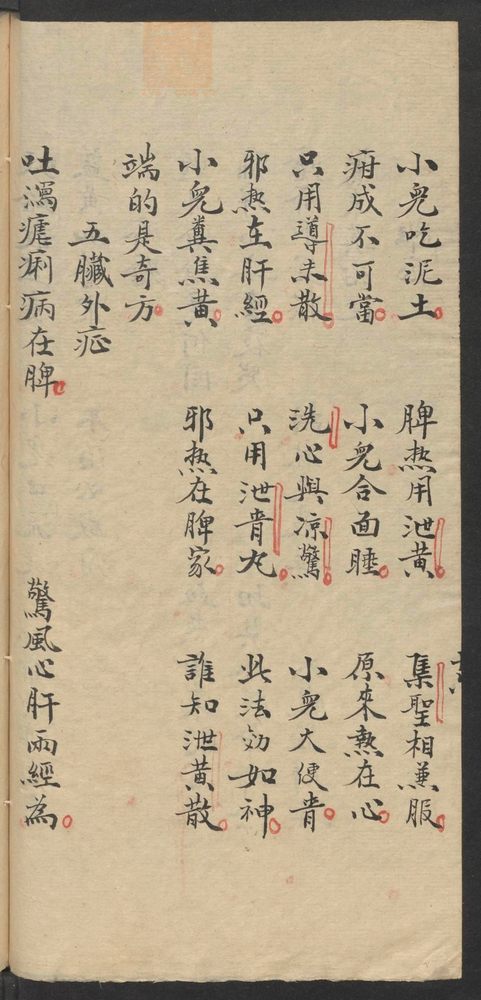 小兒吃泥土 脾热用泄黄 集聖相蒹服
疳成不可當 小兒合面睡 原來熱在心
只用導赤散 洗心與凉驚 小兒大便青
邪熱在肝經 只用泄青丸 此法効如神
小兒糞焦黄 邪热在脾家 誰知泄黄散
端的是奇方
五臟外症
吐瀉瘧痢病在脾 驚風心肝兩經為